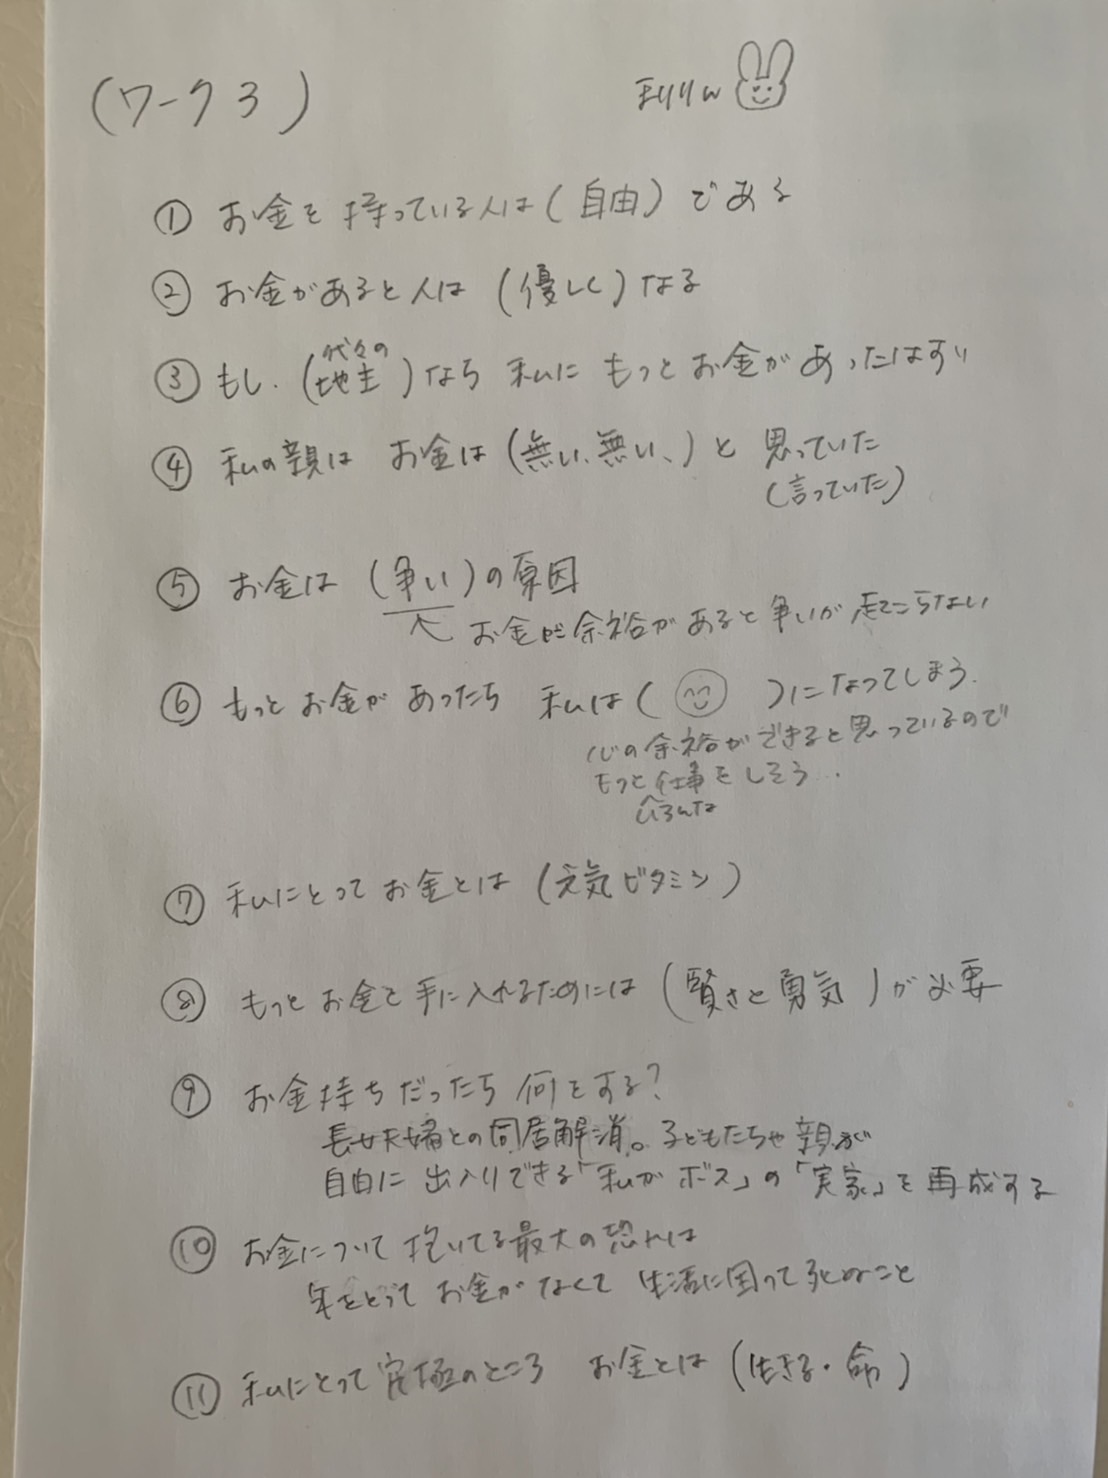 (ワーク3)
まりりん
① お金を持っている人は(自由)である
② お金があると人は(優しく)なる
③ もし、(代々の地主)なら私にもっとお金があったはず
④ 私の親はお金は(無い、無い、)と思っていた
(言っていた)
⑤ お金は(争い)の原因
お金に余裕があると争いが起こらない
⑥ もっとお金があったら 私は( )になってしまう。
心の余裕ができると思っているので
もっと仕事をしそう…
いろんな
⑦ 私にとってお金とは(元気ビタミン)
⑧ もっとお金を手に入れるためには(賢さと勇気)が必要
⑨ お金持ちだったら何をする?
長女夫婦との同居解消。子どもたちや親が
自由に出入りできる「私がボス」の「実家」を再成する
⑩ お金について抱いてる最大の恐れは
年をとってお金がなくて生活に困って死ぬこと
⑪ 私にとって究極のところ お金とは(生きる・命)